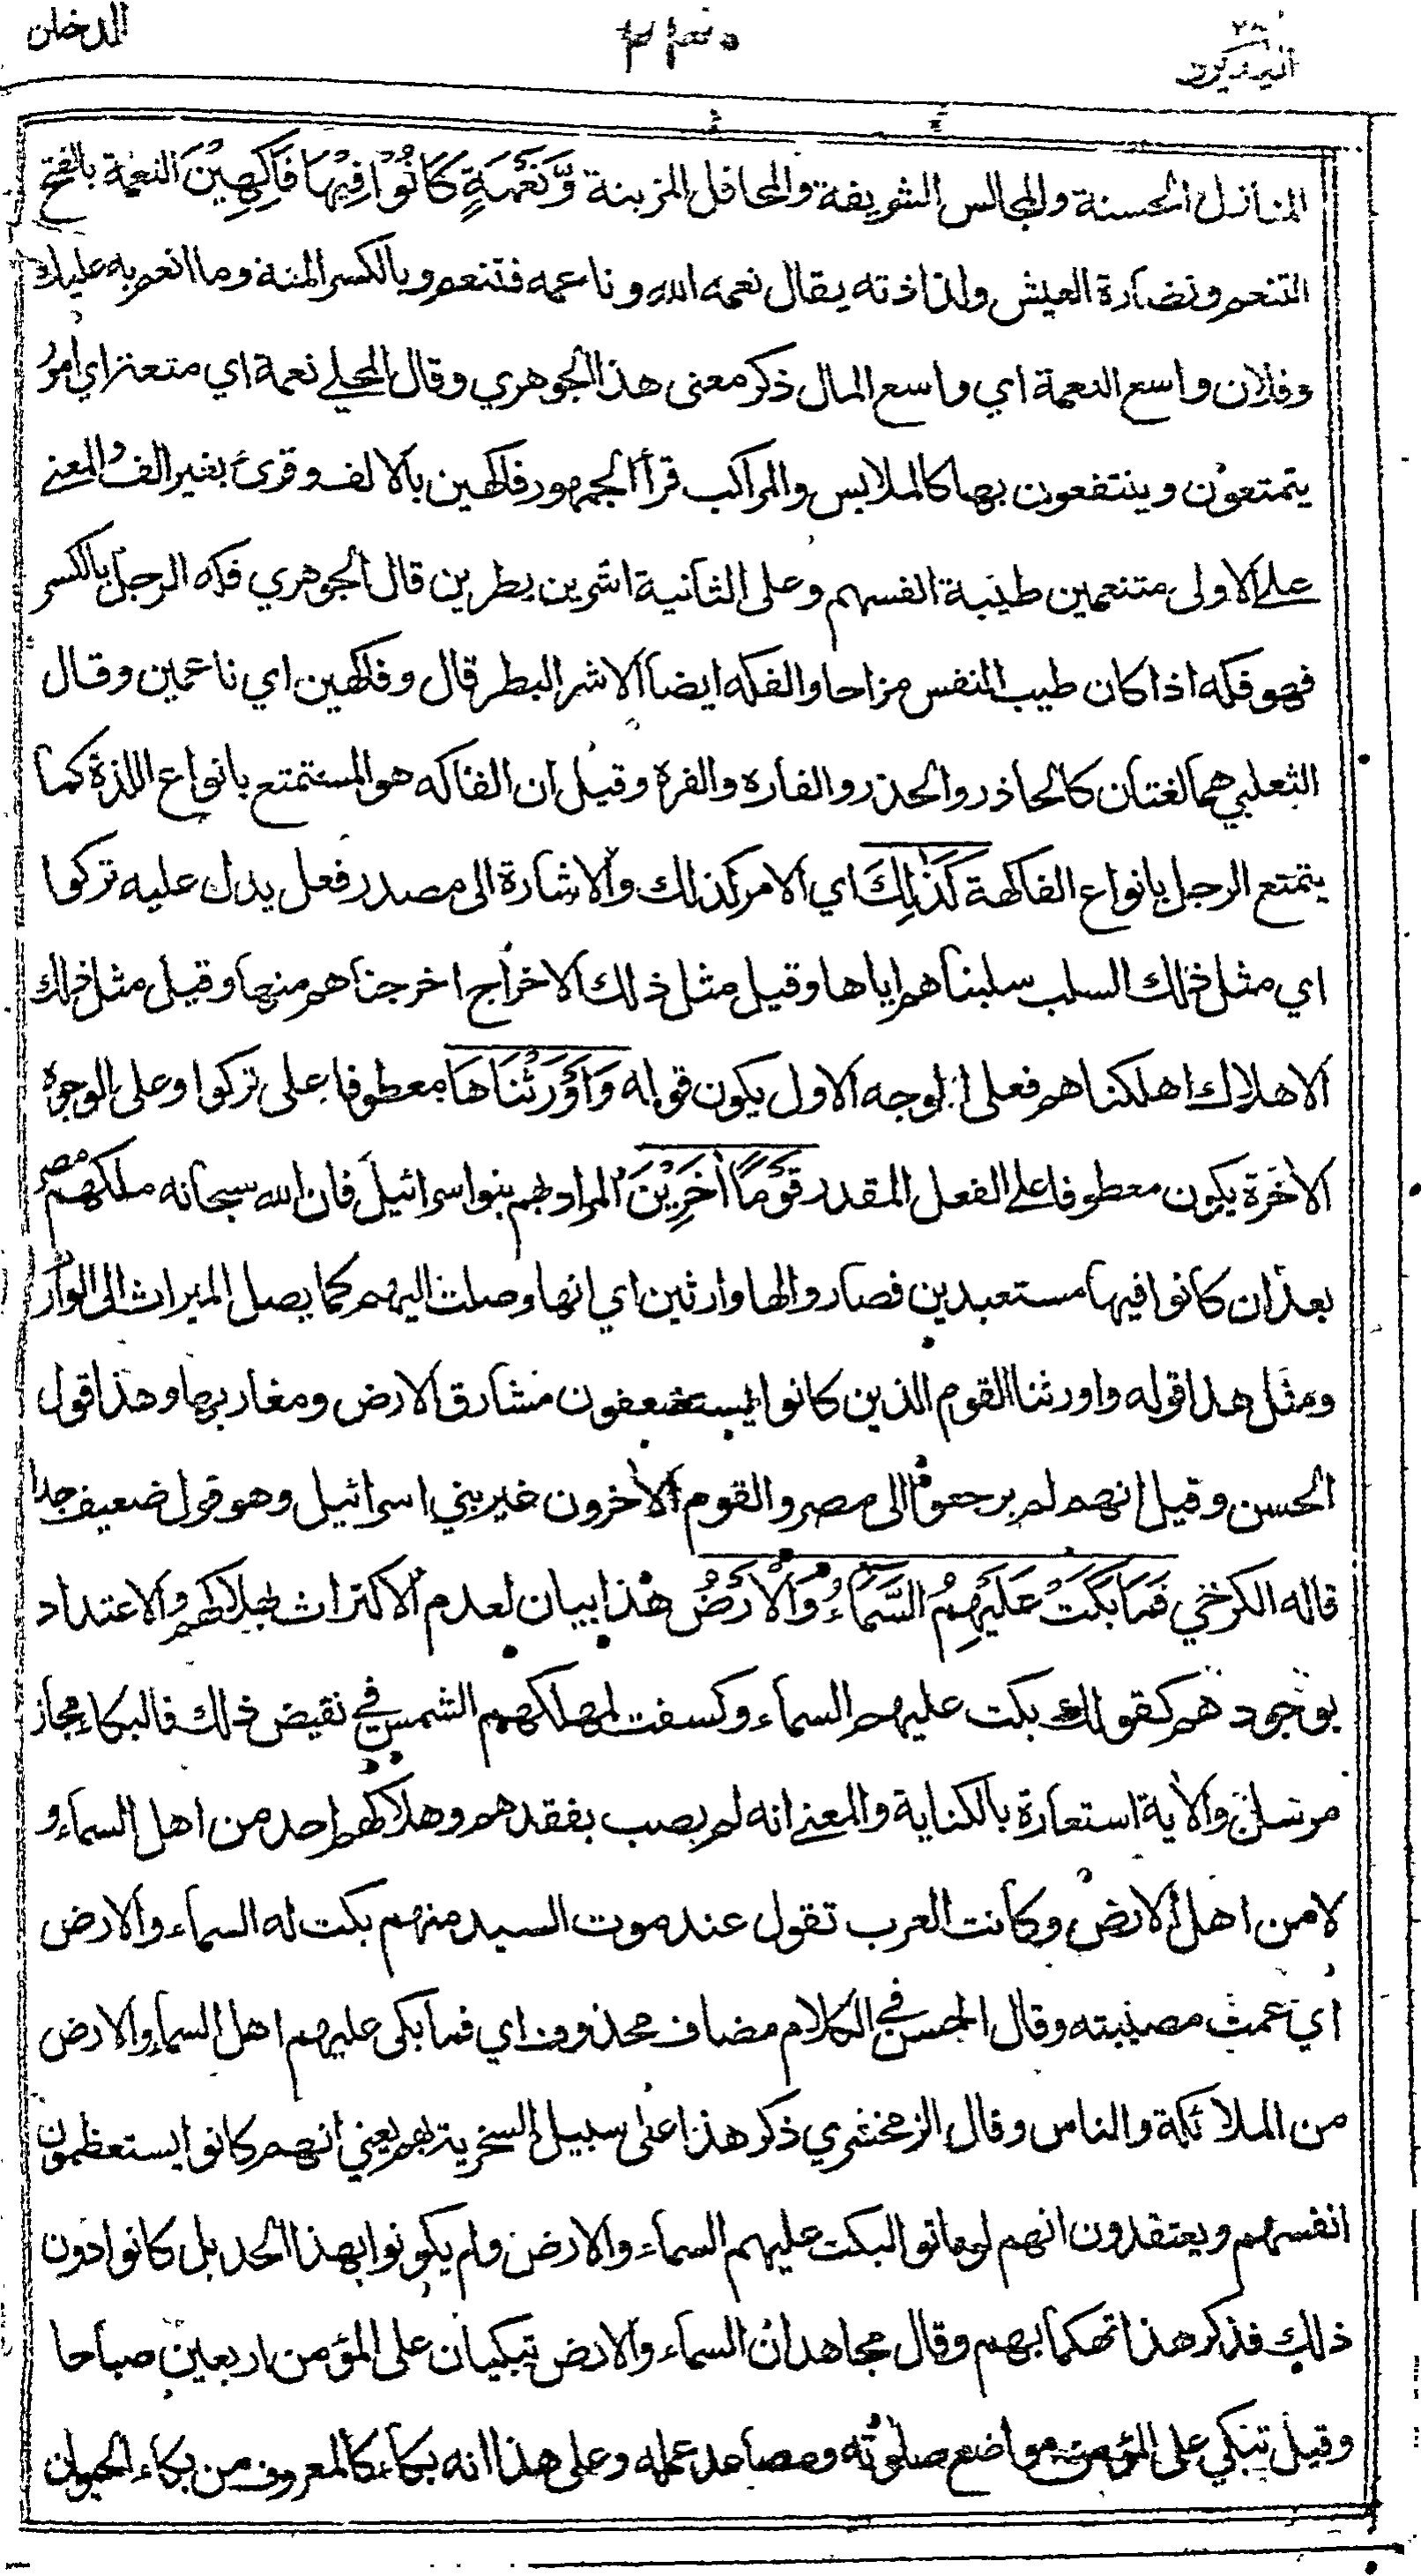 الدخان
اليه يرد ٢٥
المنازل الحسنة والمجالس الشريفة والمحافل المزينة وَّنَعْمَةٍ كَانُوْا فِيْهَا فَاكِهِيْنَ النعمة بالفتح
التنعم ونضارة العيش ولذاذته يقال نعمه الله وناعمه فتنعم وبالكسر المنة وما انعم به عليك
وفلان واسع النعمة اي واسع المال ذكر معنى هذا الجوهري وقال المحلي نعمة اي متعة اي امور
يتمتعون وينتفعون بها كالملابس والمراكب قرأ الجمهور فاكهين بالالف وقرئ بغير الف والمعنى
على الاولى متنعمين طيبة انفسهم وعلى الثانية اشرين بطرين قال الجوهري فكه الرجل بالكسر
فهو فكه اذا كان طيب النفس مزاحا والفكه ايضا الاشر البطر قال وفاكهين اي ناعمين وقال
الثعلبي هما لغتان كالحاذر والحذر والفاره والفره وقيل ان الفاكه هو المستمتع بانواع اللذة كما
يتمتع الرجل بانواع الفاكهة كَذٰلِكَ اي الامر كذلك والاشارة الى مصدر فعل يدل عليه تركوا
اي مثل ذلك السلب سلبناهم اياها وقيل مثل ذلك الاخراج اخرجناهم منها وقيل مثل ذلك
الاهلاك اهلكناهم فعلى الوجه الاول يكون قوله وَاَوْرَثْنَاهَا معطوفا على تركوا وعلى الوجوه
الاخرة يكون معطوفا على الفعل المقدر قَوْمًا اٰخَرِيْنَ المراد بهم بنو اسرائيل فان الله سبحانه ملكهم مصر
بعد ان كانوا فيها مستعبدين فصاروا لها وارثين اي انها وصلت اليهم كما يصل الميراث الى الوارث
ومثل هذا قوله واورثنا القوم الذين كانوا يستضعفون مشارق الارض ومغاربها وهذا قول
الحسن وقيل انهم لم يرجعوا الى مصر والقوم الاخرون غير بني اسرائيل وهو قول ضعيف جدا
قاله الكرخي فَمَا بَكَتْ عَلَيْهِمُ السَّمَآءُ وَالْاَرْضُ هذا بيان لعدم الاكتراث بهلاكهم والاعتداد
بوجودهم كقولك بكت عليهم السماء وكسفت لمهلكهم الشمس في نقيض ذلك فالبكاء مجاز
مرسل والاية استعارة بالكناية والمعنى انه لم يصب بفقدهم وهلاكهم احد من اهل السماء و
لا من اهل الارض وكانت العرب تقول عند موت السيد منهم بكت له السماء والارض
اي عمت مصيبته وقال الحسن في الكلام مضاف محذوف اي فما بكى عليهم اهل السماء والارض
من الملائكة والناس وقال الزمخشري ذكر هذا على سبيل السخرية بهم يعني انهم كانوا يستعظمون
انفسهم ويعتقدون انهم لو ماتوا لبكت عليهم السماء والارض ولم يكونوا بهذا الحد بل كانوا دون
ذلك فذكر هذا تهكما بهم وقال مجاهد ان السماء والارض تبكيان على المؤمن اربعين صباحا
وقيل تبكي على المؤمن مواضع صلوته ومصاعد عمله وعلى هذا انه بكاء كالمعروف من بكاء الحيوان